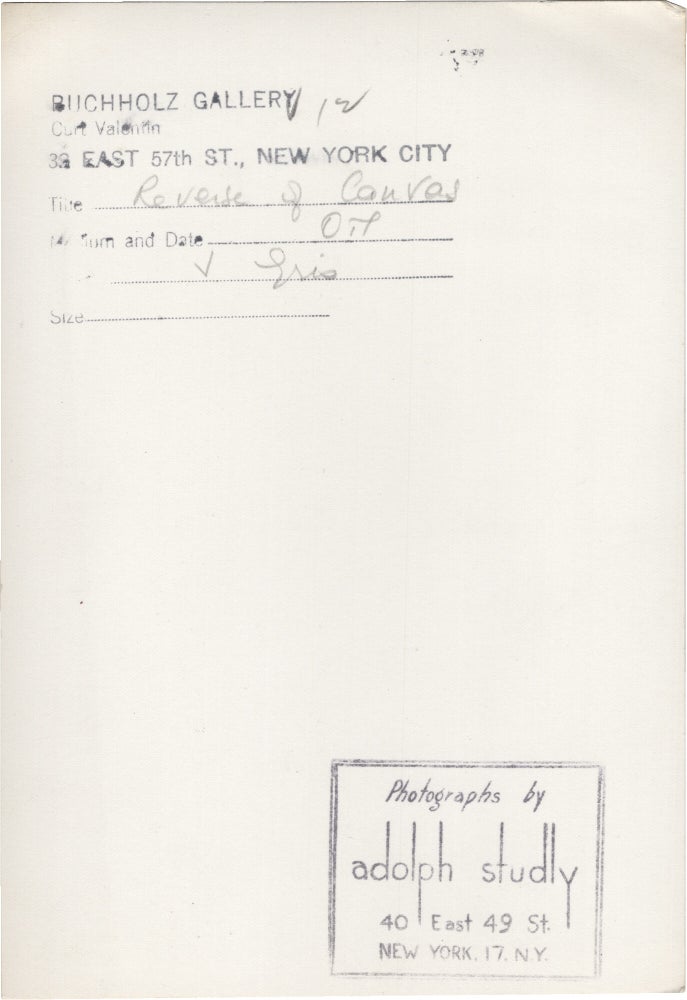 BUCHHOLZ GALLERY 12
Curt Valentin
32 EAST 57th ST., NEW YORK CITY
Title Reverse of Canvas
Medium and Date Oil
J Gris
Size
Photographs by
adolph studly
40 East 49 St.
NEW YORK. 17. N.Y.